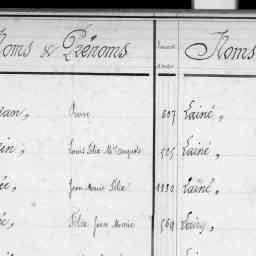 Noms & Prénoms Noms
ean, Pierre 807 Lainé,
ein, Louis Félix Mie Auguste 525 Lainé,
ée, Jean Marie Félix 1232 Lainé,
é, Félix Jean Marie 569 Lairy,